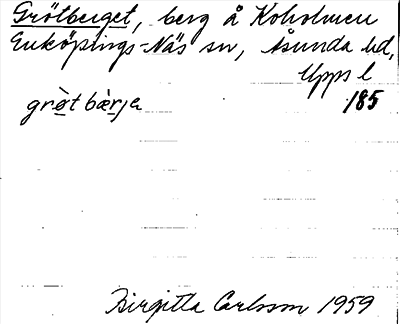 Grötberget, berg å Koholmen
Enköpings-Näs sn, Åsunda hd,
Upps l
185
grö̀t bæ̀rje
Birgitta Carlsson 1959